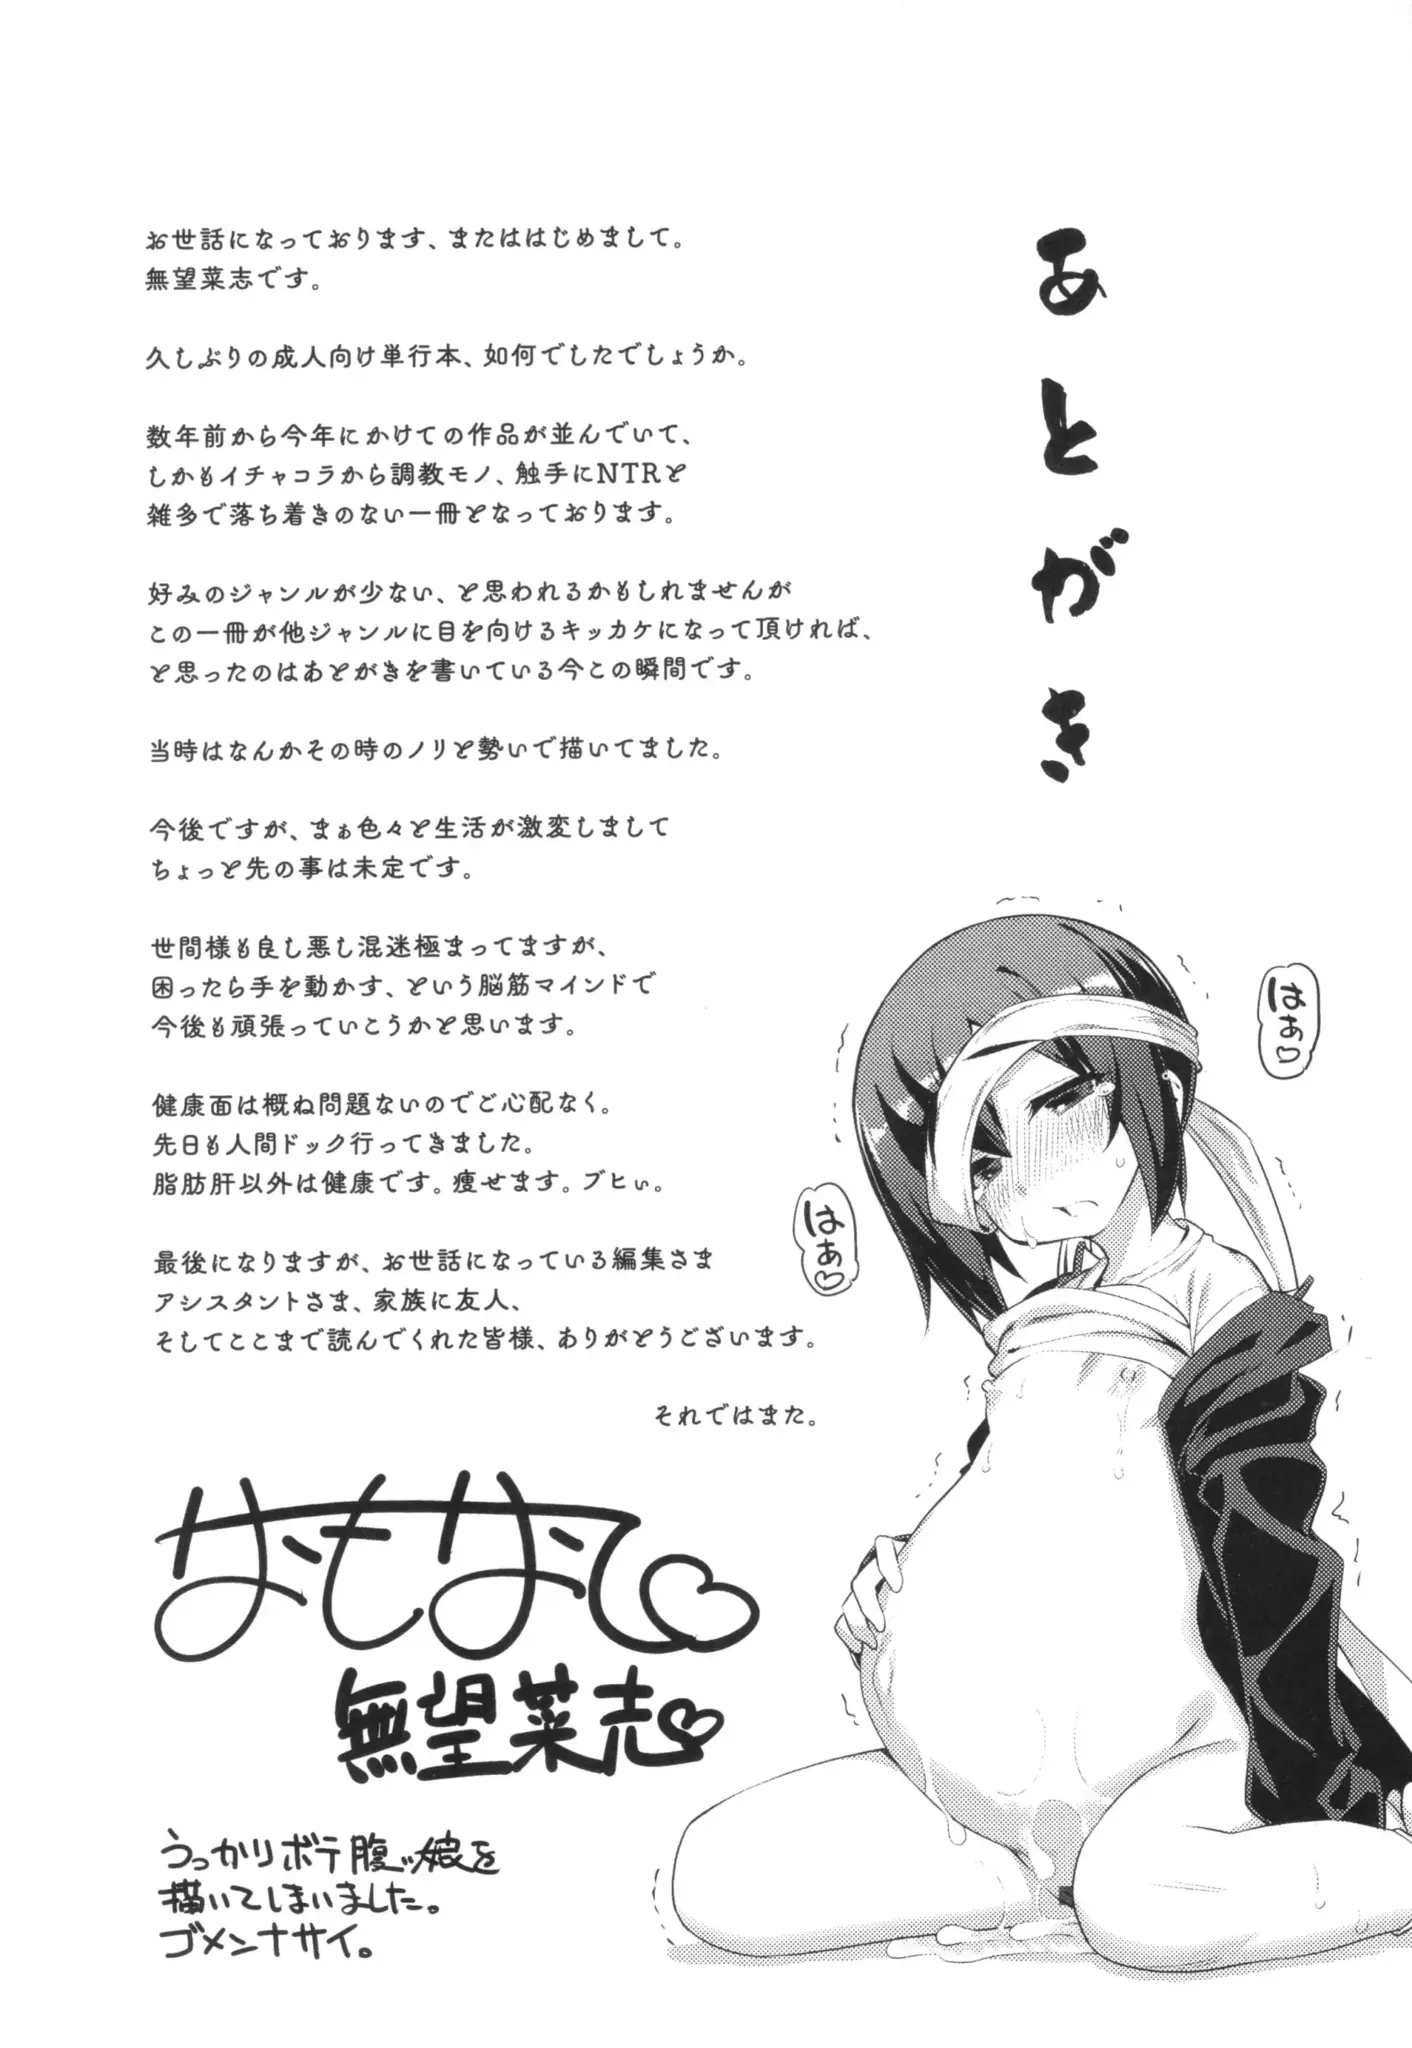 あとがき
お世話になっております、またははじめまして。
無望菜志です。
久しぶりの成人向け単行本、如何でしたでしょうか。
数年前から今年にかけての作品が並んでいて、
しかもイチャコラから調教モノ、触手にNTRと
雑多で落ち着きのない一冊となっております。
好みのジャンルが少ない、と思われるかもしれませんが
この一冊が他ジャンルに目を向けるキッカケになって頂ければ、
と思ったのはあとがきを書いている今この瞬間です。
当時はなんかその時のノリと勢いで描いてました。
今後ですが、まぁ色々と生活が激変しまして
ちょっと先の事は未定です。
世間様も良し悪し混迷極まってますが、
困ったら手を動かす、という脳筋マインドで
今後も頑張っていこうかと思います。
健康面は概ね問題ないのでご心配なく。
先日も人間ドック行ってきました。
脂肪肝以外は健康です。痩せます。ブヒぃ。
最後になりますが、お世話になっている編集さま
アシスタントさま、家族に友人、
そしてここまで読んでくれた皆様、ありがとうございます。
それではまた。
はぁ♡
はぁ♡
なもなし
無望菜志
うっかりボテ腹ッ娘を
描いてしまいました。
ゴメンナサイ。